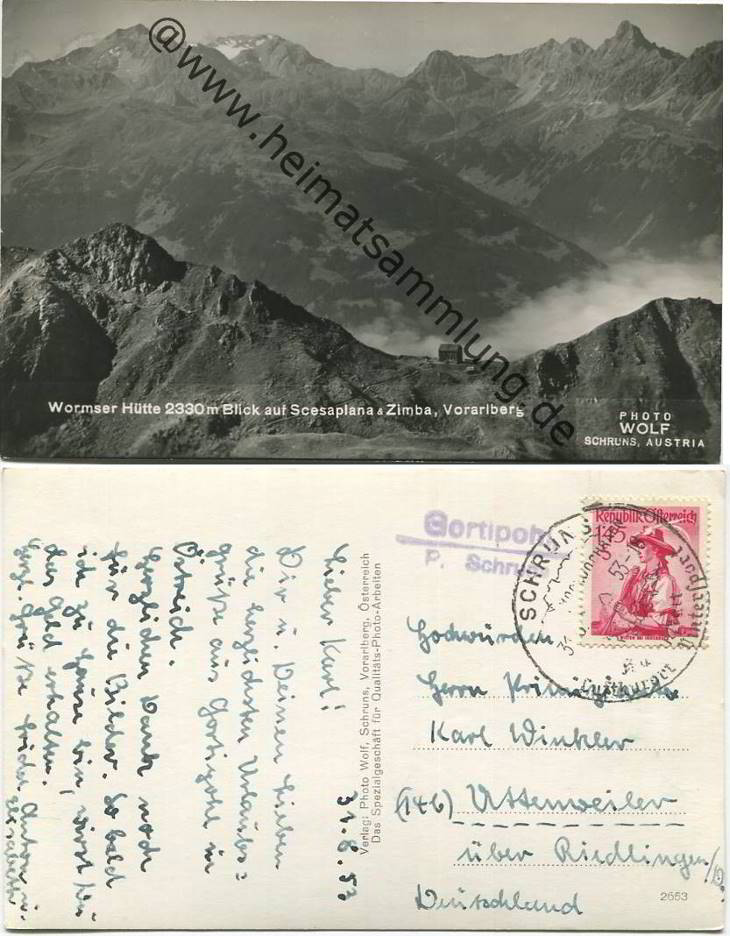 @www.heimatsammlung.de
Wormser Hütte 2330m Blick auf Scesaplana & Zimba, Vorarlberg
PHOTO
WOLF
SCHRUNS, AUSTRIA
Gortipohl
P. Schru
SCHRUNS
Luftkurort
Republik Österreich
1.45
31.8.53
Lieber Karl!
Dir u. Deinen Lieben
die herzlichsten Urlaubs=
grüße aus Gortipohl in
Östreich.
Herzlichen Dank noch
für die Bilder. Sobald
ich zu Hause bin, wirst Du
das Geld erhalten.
Herzl. Grüße Anton u.
Elisabeth
Verlag: Photo Wolf, Schruns, Vorarlberg, Österreich
Das Spezialgeschäft für Qualitäts-Photo-Arbeiten
Hochwürden
Herrn
Karl Winkler
(14b) Uttenweiler
über Riedlingen/D.
Deutschland
2653